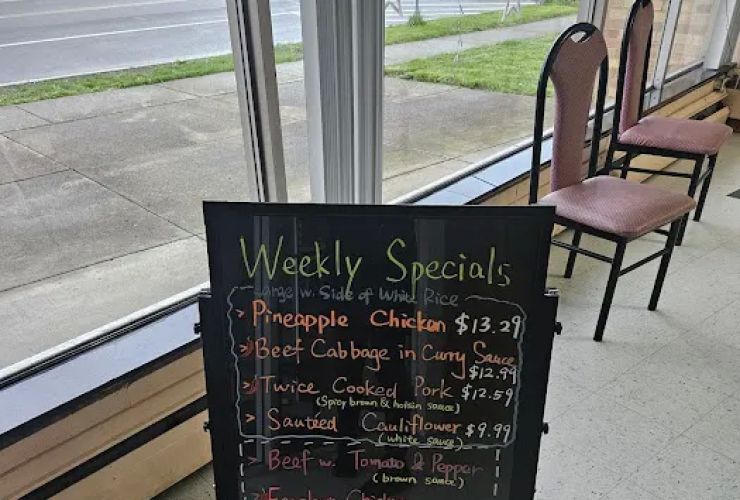 Weekly Specials
Large w. Side of White Rice
> Pineapple Chicken $13.29
> Beef Cabbage in Curry Sauce
$12.99
> Twice Cooked Pork $12.59
(Spicy brown & hoisin sauce)
> Sautéed Cauliflower $9.99
(white sauce)
> Beef w. Tomato & Pepper
(brown sauce)
Chicken